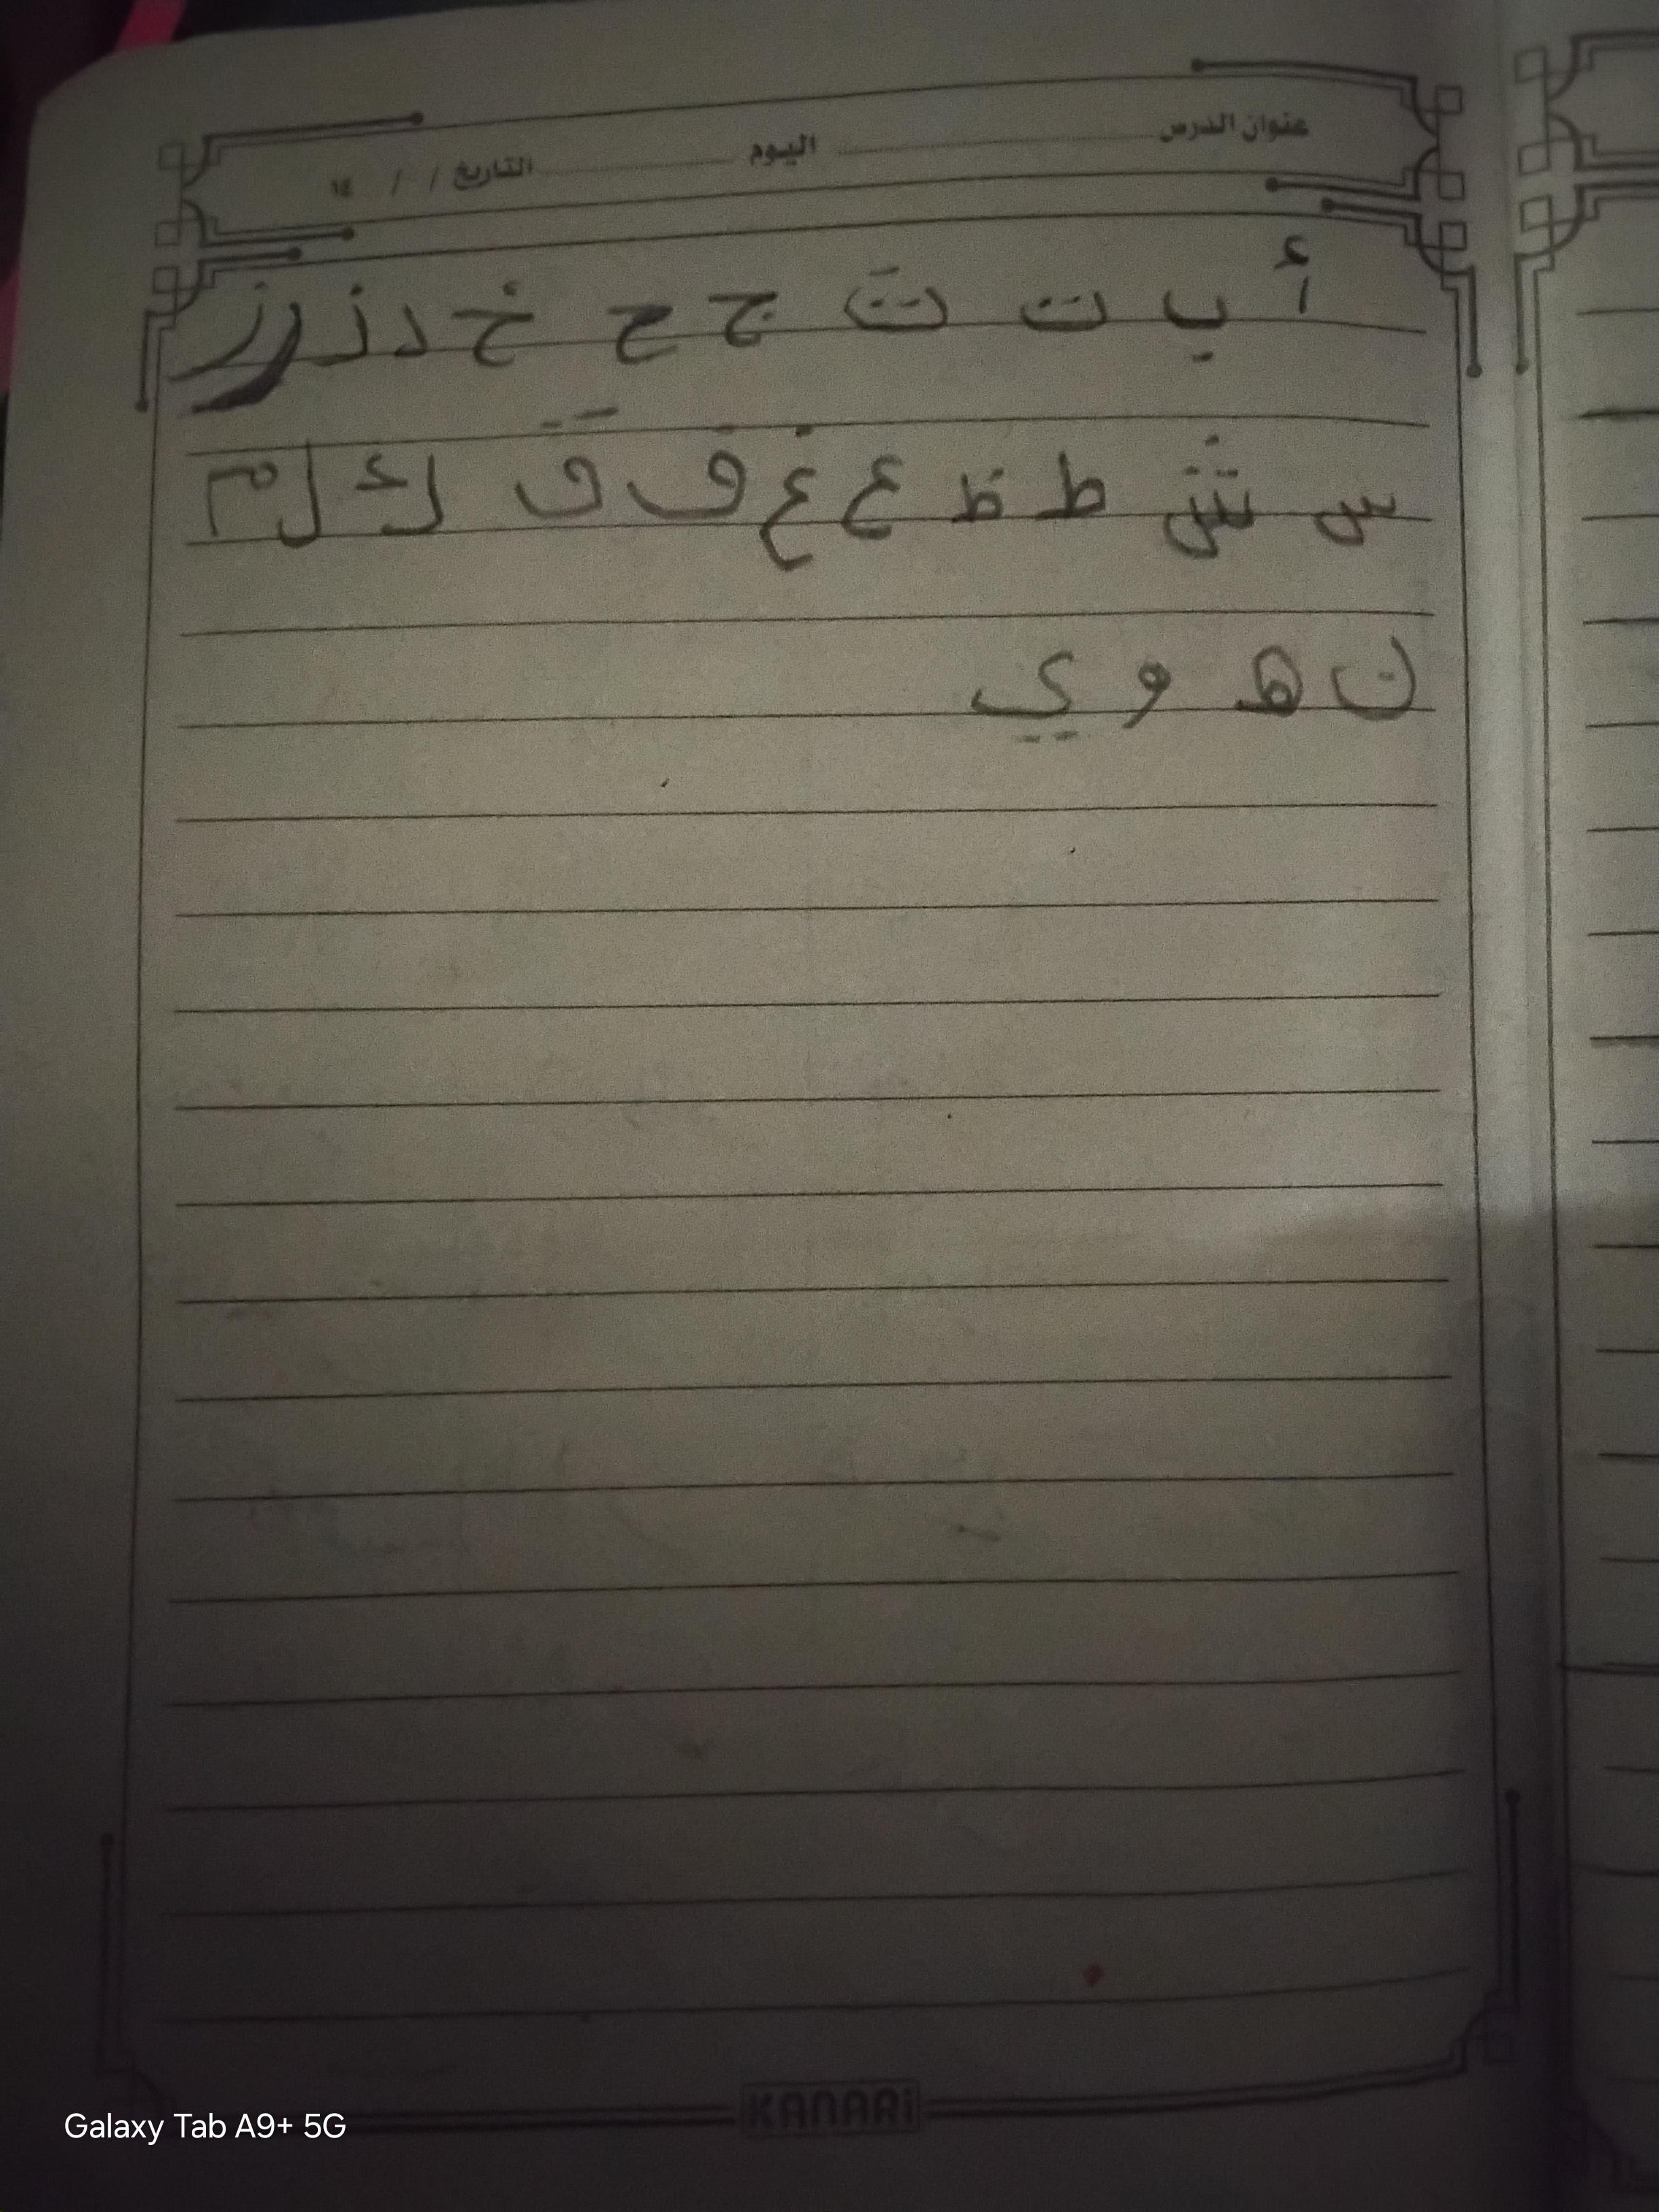 عنوان الدرس اليوم التاريخ / / ١٤
أ ب ت ث ج ح خ د ذ ر ز
س ش ط ظ ع غ ف ق ك ل م
ن ه و ي
KANARi
Galaxy Tab A9+ 5G